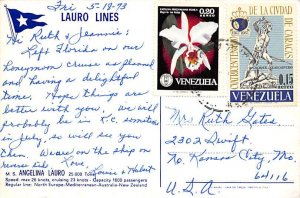 LAURO LINES
Fri 5-18-73
Hi Ruth & Jeannie:
Left Florida on our
honeymoon cruise as planned
and having a delightful
time. Hope things are
better with you, we will
probably be in K.C. sometime
in July, so will see you
then. We are on the ship on
reverse side. Love
Louise & Hubert
M.S. ANGELINA LAURO 25,000 To
Speed: max 26 knots, cruising 23 knots - Capacity 1800 passengers
Regular line: North Europe-Mediterranean-Australia-New Zealand
0.20
AEREO
VENEZUELA
DE LA CIUDAD
DE CARACAS
CUATRICENTENARIO
0.15
VENEZUELA
Mrs Ruth Gates
2303 Swift
No. Kansas City, Mo.
64116
U.S.A